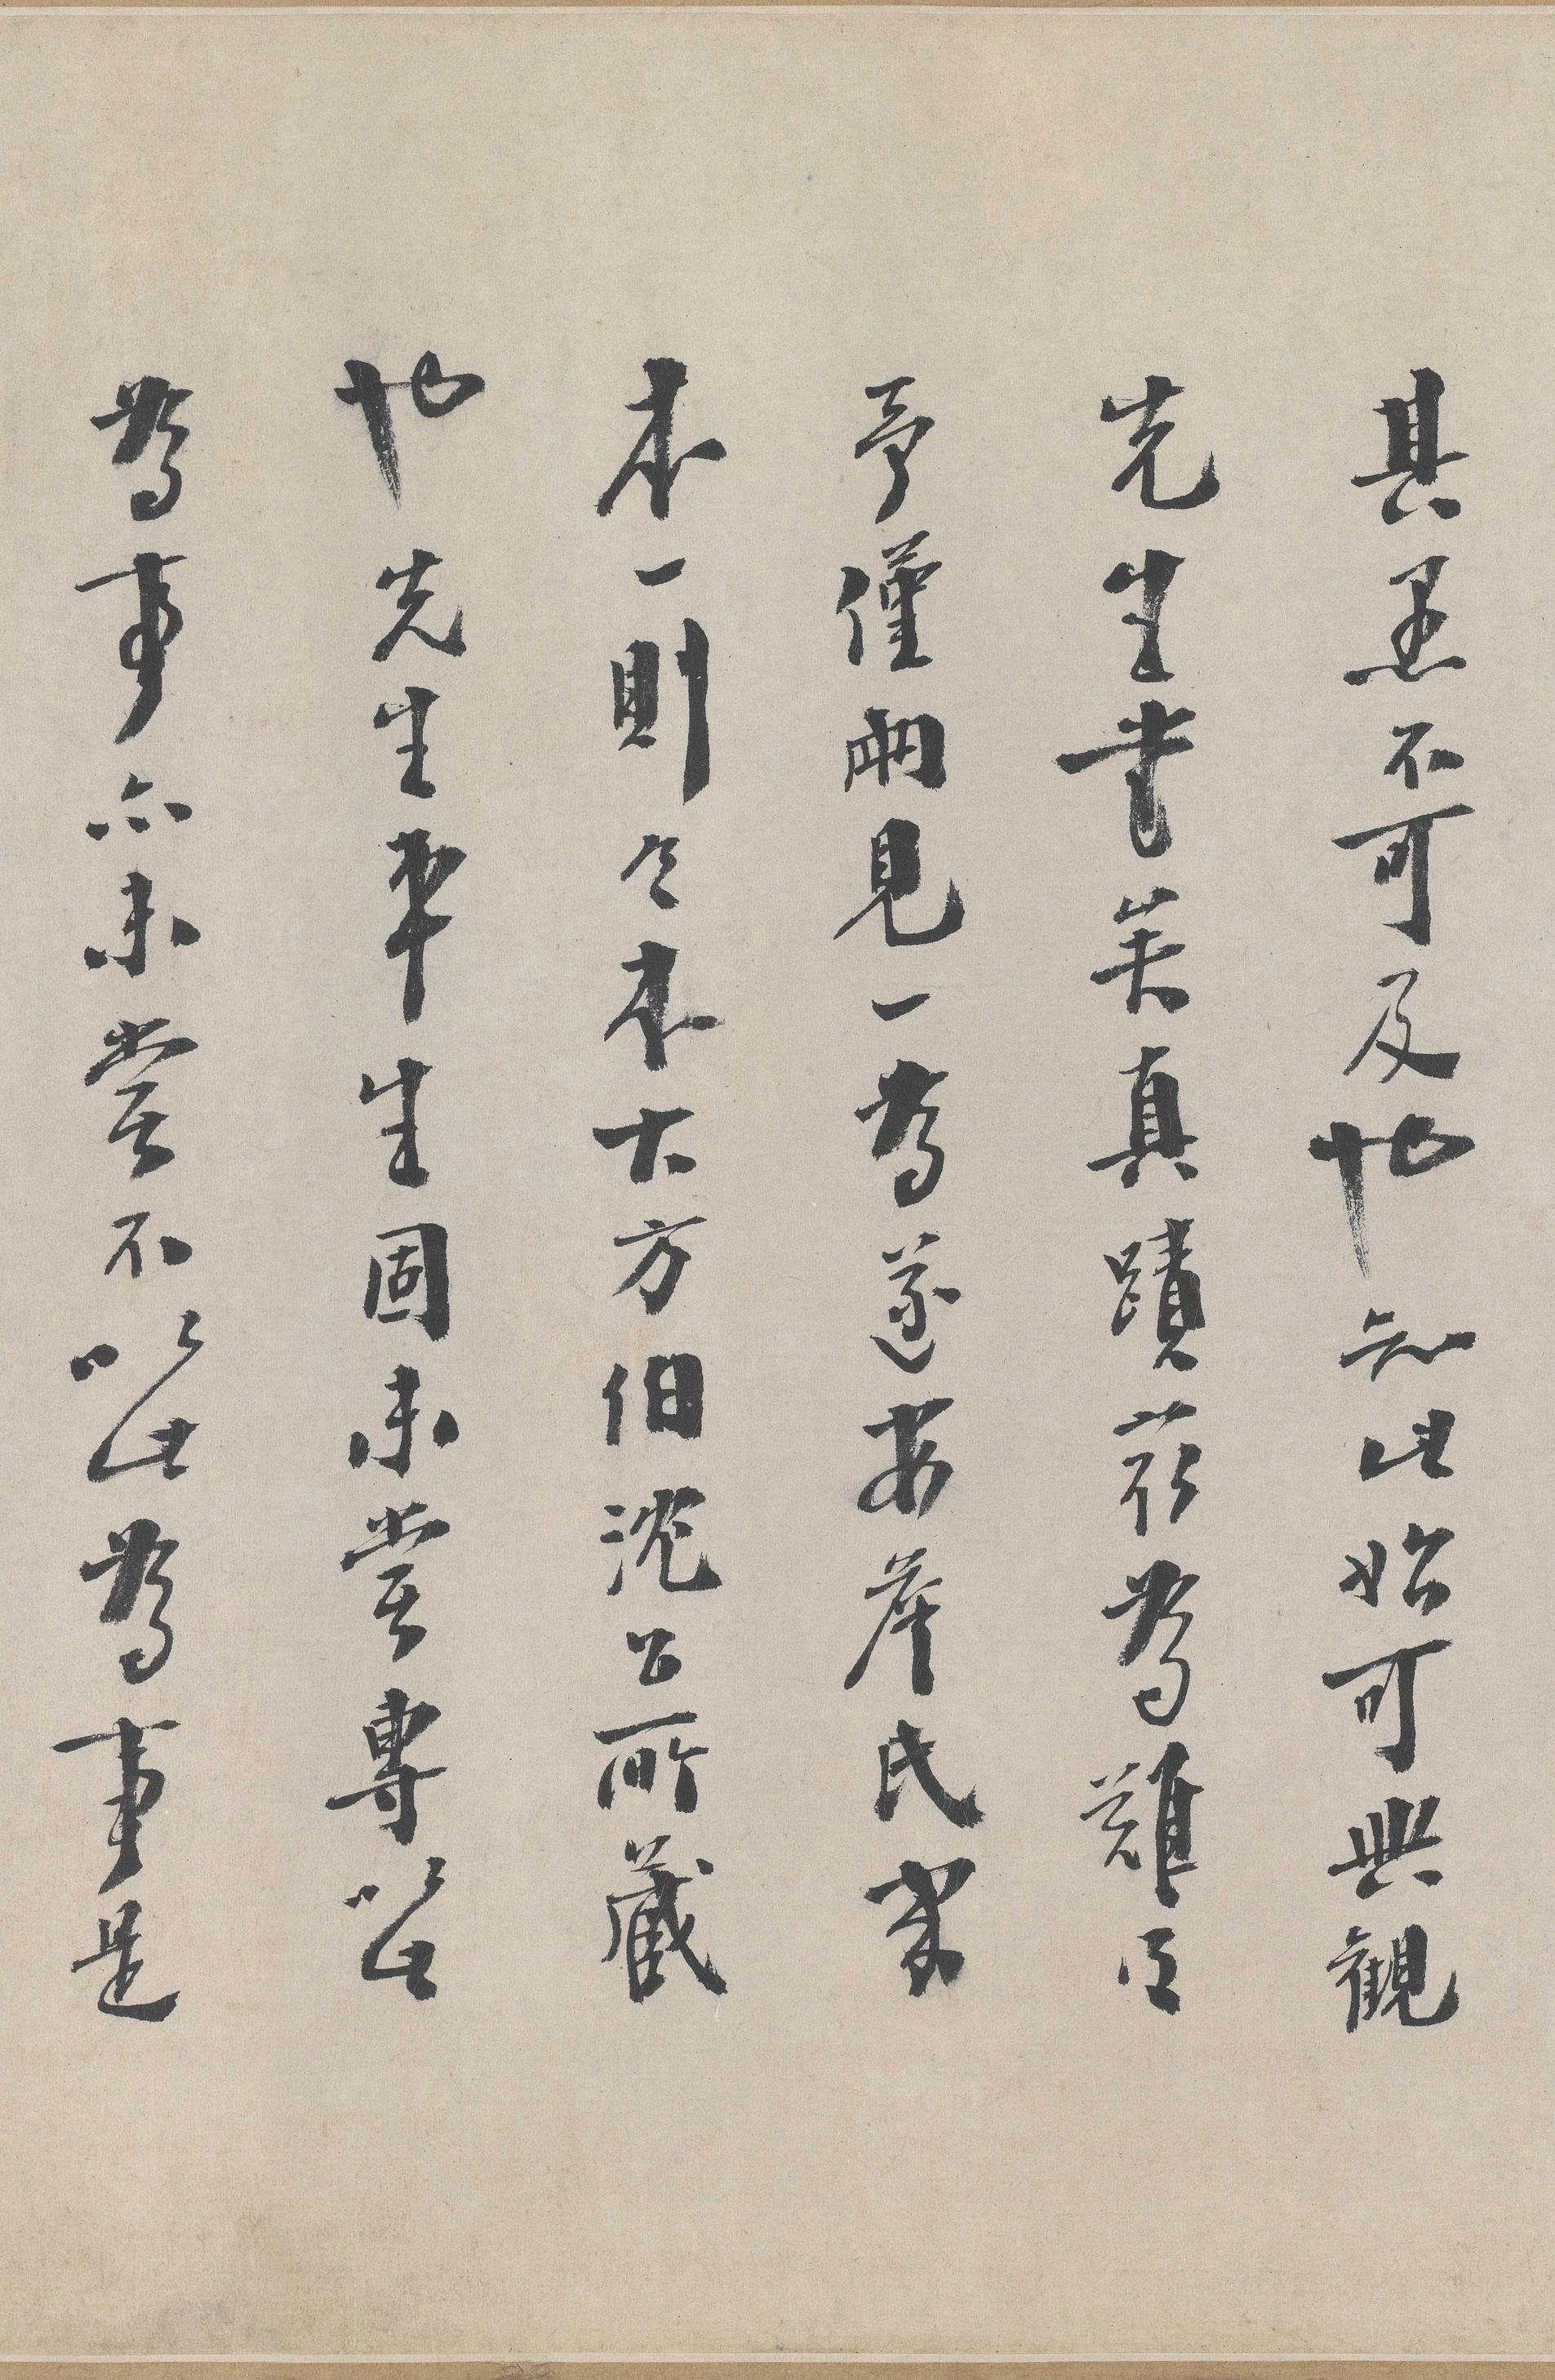 其墨不可及也知此始可與觀
先生書矣真蹟最為難得
予僅兩見一為遂安詹氏家
本一則今本大方伯沈公所藏
也先生平生固未嘗專以此
為事亦未嘗不以此為事是